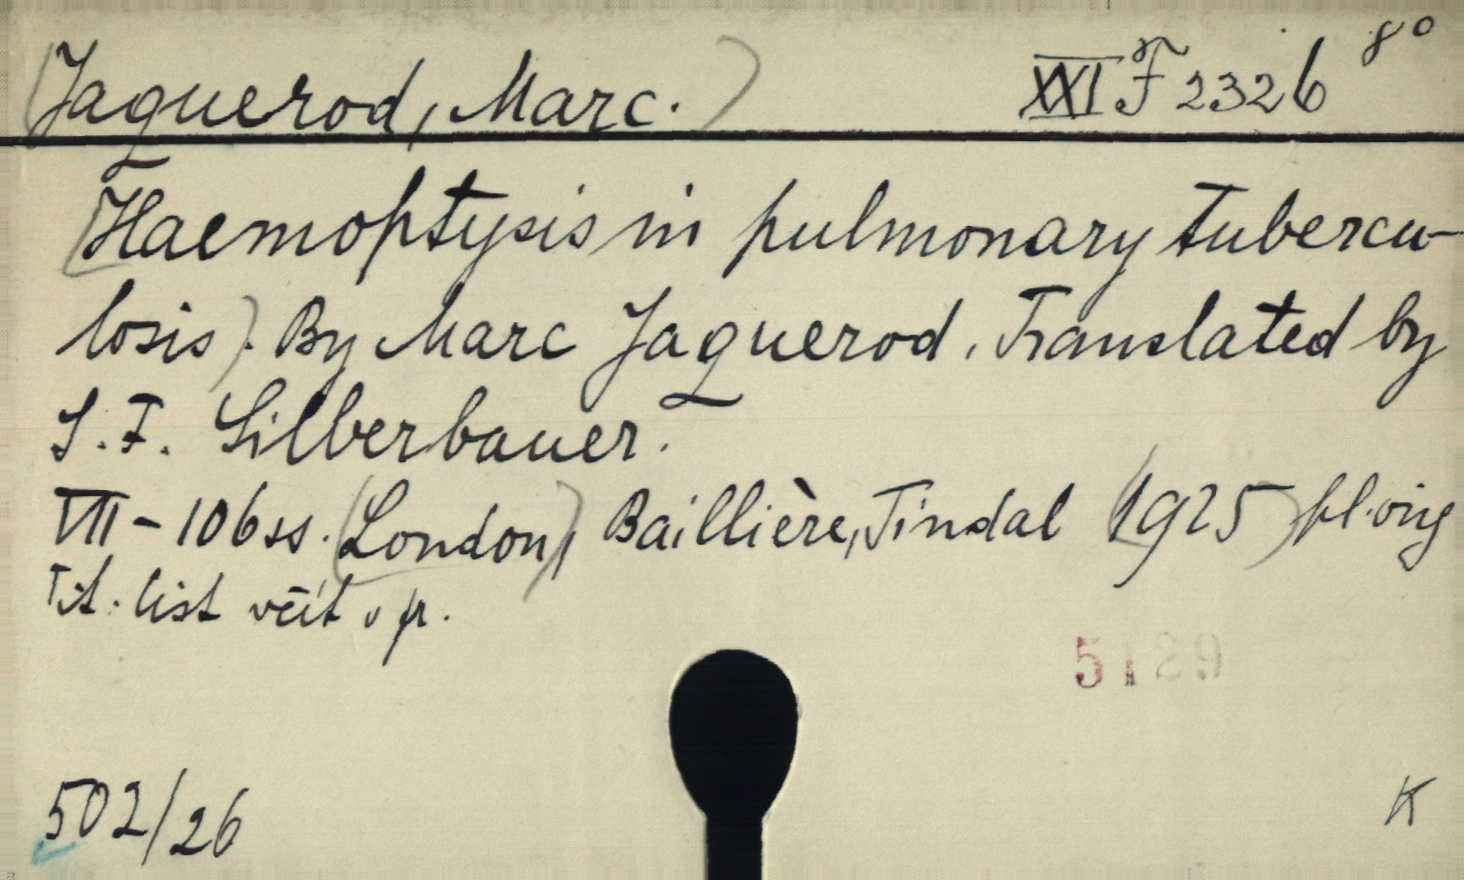 (Jaquerod, Marc.) XXI F 2326 8°
(Haemoptysis in pulmonary tubercu-
losis). By Marc Jaquerod. Translated by
S. F. Silberbauer.
VII - 106 ss. (London), Baillière, Tindal (1925) pl. orig
Tit. list včít v p.
5189
502/26 K